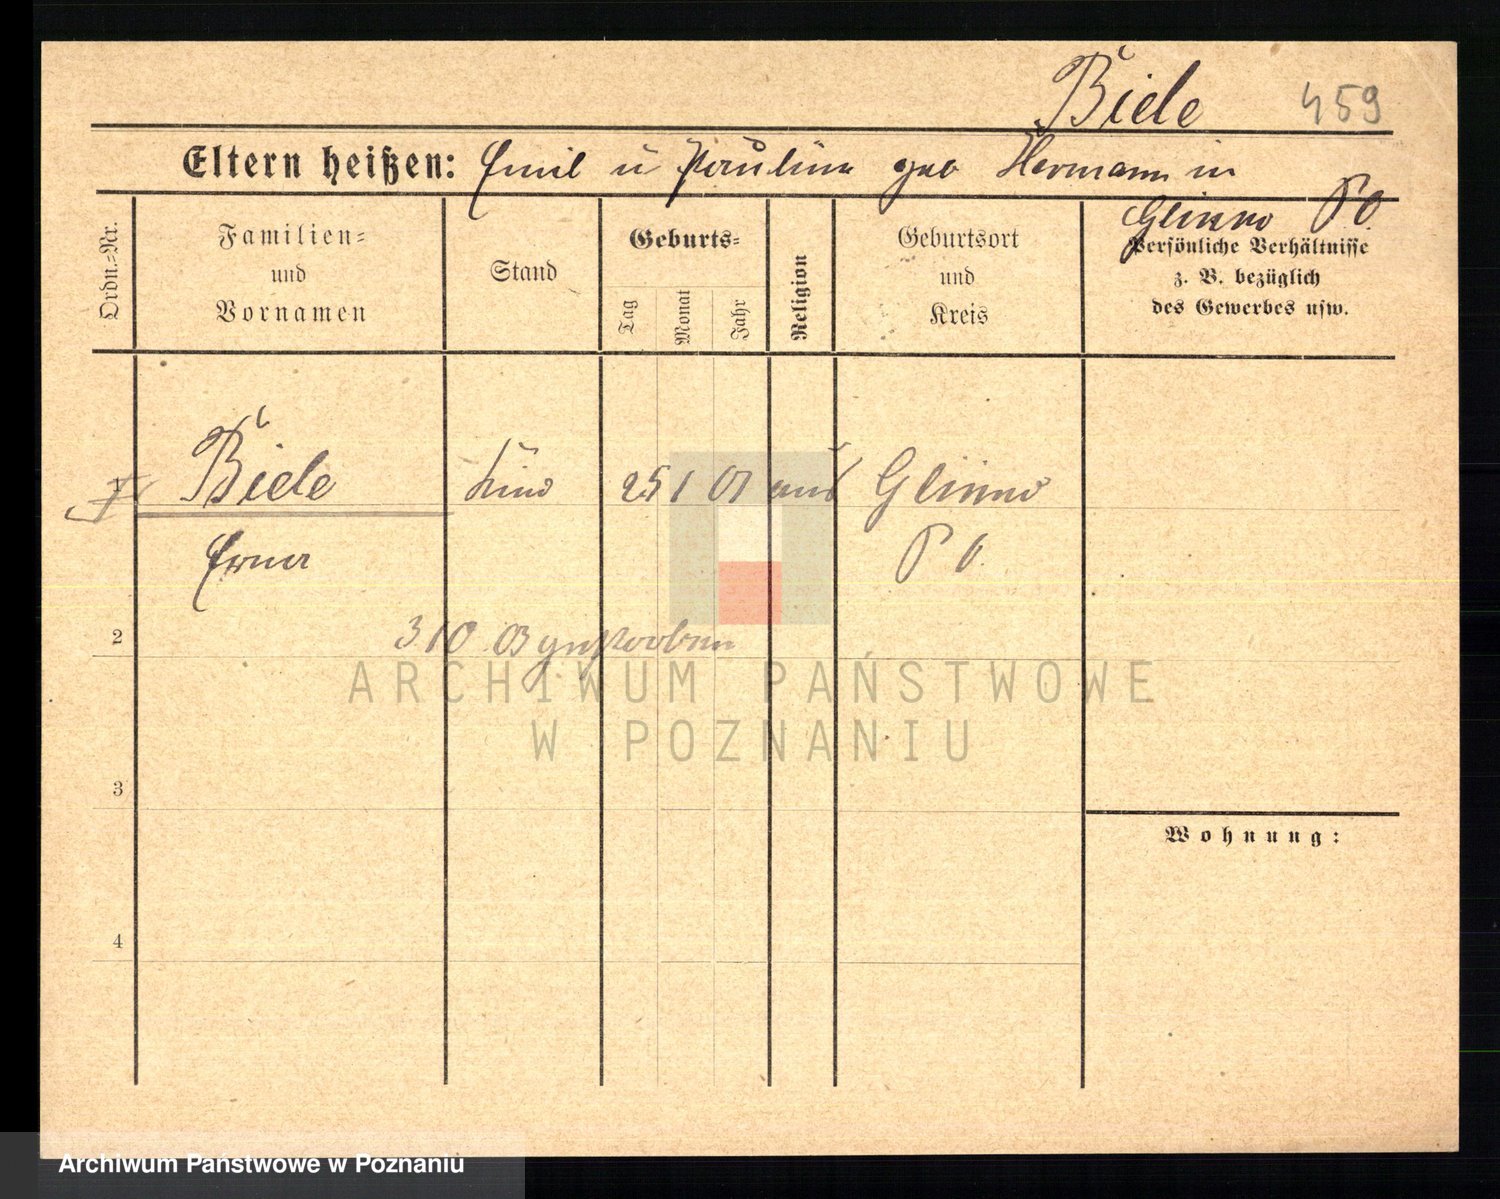 Biele 459
Eltern heißen: Emil u Pauline geb Hermann in
Glinno P O.
Ordn.-Nr.
Familien-
und
Vornamen
Stand
Geburts-
Tag
Monat
Jahr
Religion
Geburtsort
und
Kreis
Persönliche Verhältnisse
z. B. bezüglich
des Gewerbes usw.
1 Biele Kind 25 1 01 Glinno
Erna P O.
2
3 10 03 gestorben
ARCHIWUM PAŃSTWOWE
W POZNANIU
3
Wohnung:
4
Archiwum Państwowe w Poznaniu